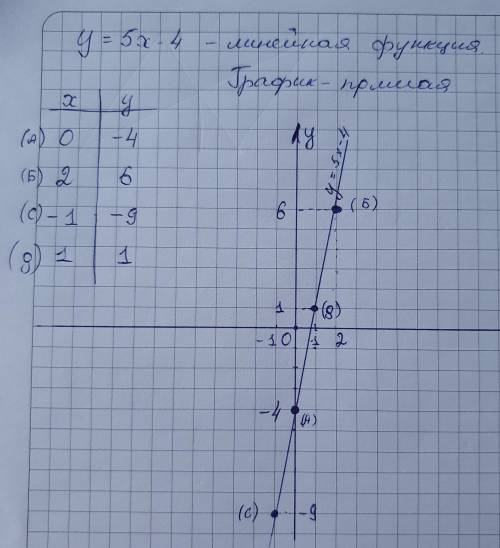 y = 5x - 4 - линейная функция.
График - прямая
x y
(А) 0 -4
(Б) 2 6
(С) -1 -9
(д) 1 1
y
y = 5x-4
6 (Б)
1 (д)
-1 0 1 2
-4 (А)
(С) -9